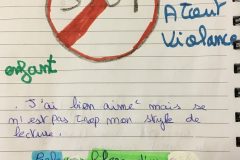 STOP
A tout
Violance
enfant
. J'ai bien aimé mais se
n'est pas trop mon style de
lecture.